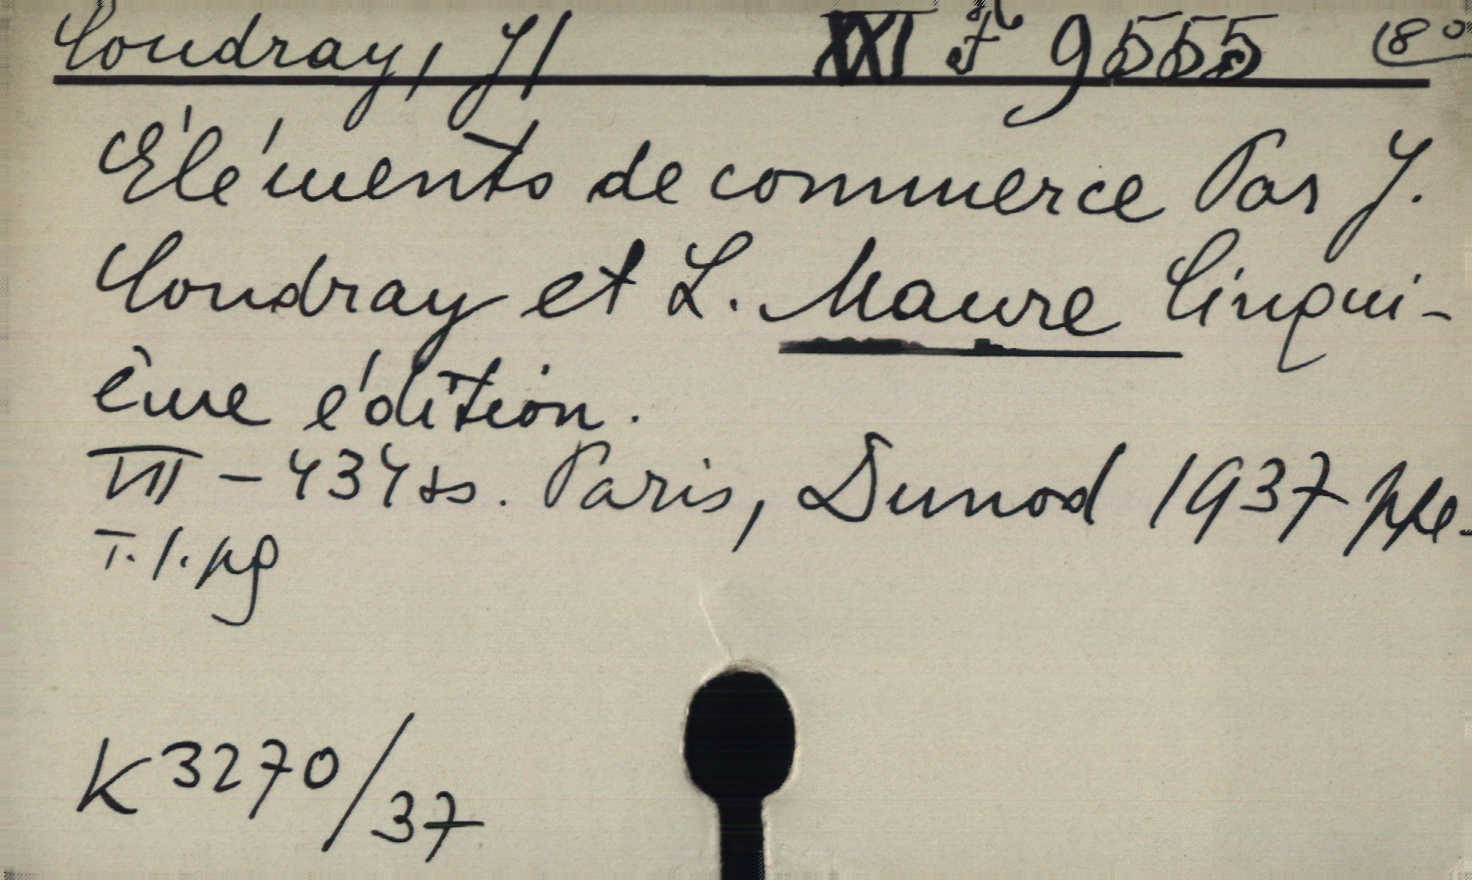 Coudray, J/ XXI F 9555 (8°
Éléments de commerce Par J.
Coudray et L. Maure Cinqui-
ème édition.
VII - 434 ss. Paris, Dunod 1937 ppe.
T. 1. pg
K 3270/37